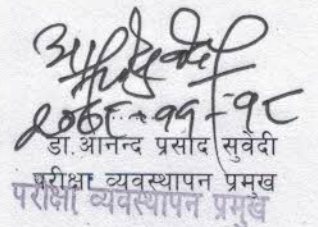 २०७९-११-१८
डा. आनन्द प्रसाद सुवेदी
परीक्षा व्यवस्थापन प्रमुख
परीक्षा व्यवस्थापन प्रमुख